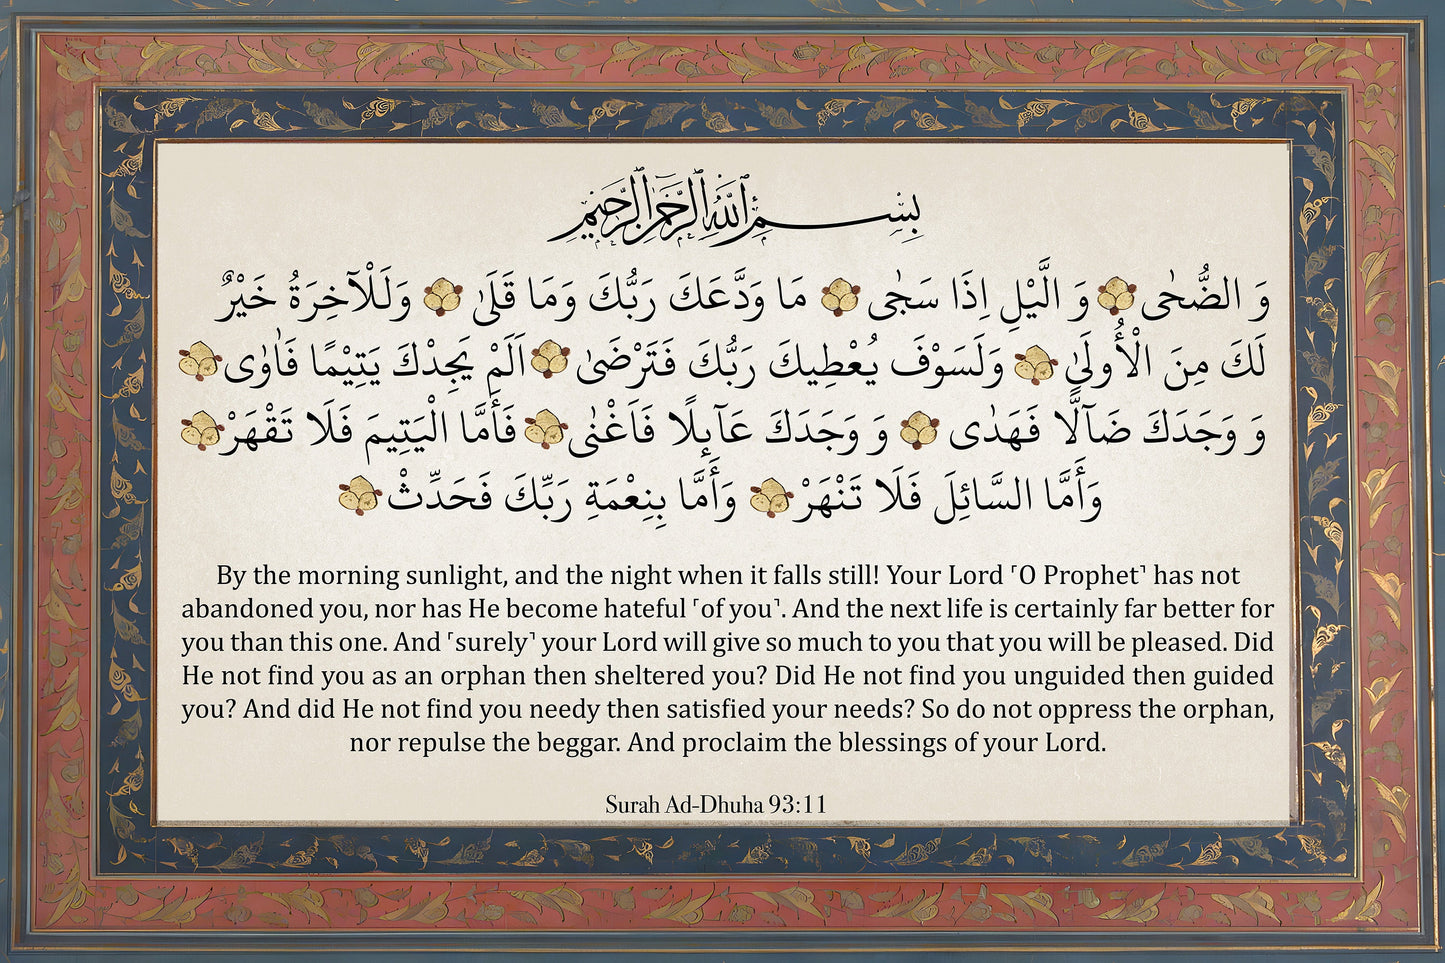 بِسْمِ اللَّهِ الرَّحْمَٰنِ الرَّحِيمِ
وَ الضُّحٰى وَ الَّيْلِ اِذَا سَجٰى مَا وَدَّعَكَ رَبُّكَ وَمَا قَلَىٰ وَلَلْآخِرَةُ خَيْرٌ
لَكَ مِنَ الْأُولَىٰ وَلَسَوْفَ يُعْطِيكَ رَبُّكَ فَتَرْضَىٰ اَلَمْ يَجِدْكَ يَتِيْمًا فَاٰوٰى
وَ وَجَدَكَ ضَآلًّا فَهَدٰى وَ وَجَدَكَ عَآىِٕلًا فَاَغْنٰى فَأَمَّا الْيَتِيمَ فَلَا تَقْهَرْ
وَأَمَّا السَّائِلَ فَلَا تَنْهَرْ وَأَمَّا بِنِعْمَةِ رَبِّكَ فَحَدِّثْ
By the morning sunlight, and the night when it falls still! Your Lord ˹O Prophet˺ has not
abandoned you, nor has He become hateful ˹of you˺. And the next life is certainly far better for
you than this one. And ˹surely˺ your Lord will give so much to you that you will be pleased. Did
He not find you as an orphan then sheltered you? Did He not find you unguided then guided
you? And did He not find you needy then satisfied your needs? So do not oppress the orphan,
nor repulse the beggar. And proclaim the blessings of your Lord.
Surah Ad-Dhuha 93:11